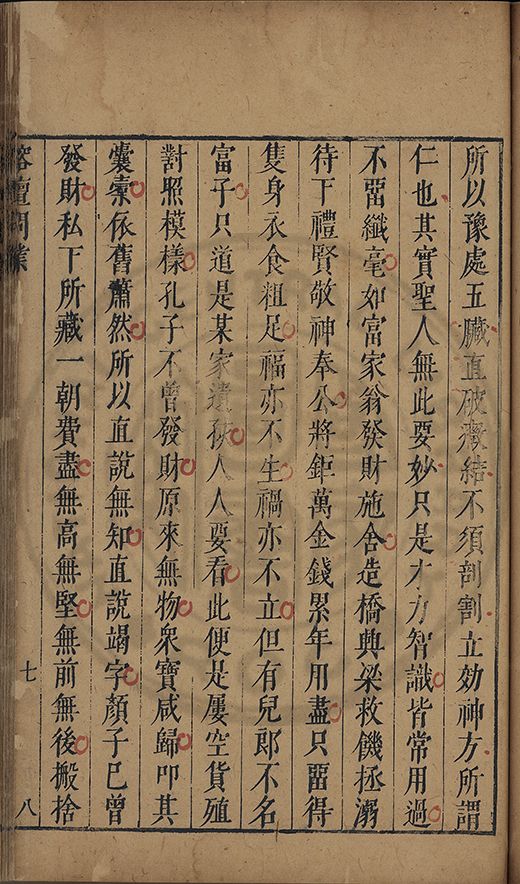 所以豫處五臟直破癥結不須剖割立効神方所謂
仁也其實聖人無此要妙只是才力智識皆常用過
不畱纖毫如富家翁發財施舍造橋興梁救饑拯溺
待士禮賢敬神奉公將鉅萬金錢累年用盡只畱得
隻身衣食粗足福亦不生禍亦不立但有兒郎不名
富子只道是某家遺秧人人要看此便是屢空貨殖
對照模樣孔子不曾發財原來無物衆寶咸歸叩其
囊橐依舊蕭然所以直說無知直說竭字顏子已曾
發財私下所藏一朝費盡無高無堅無前無後搬捨
榕壇問業
七
八